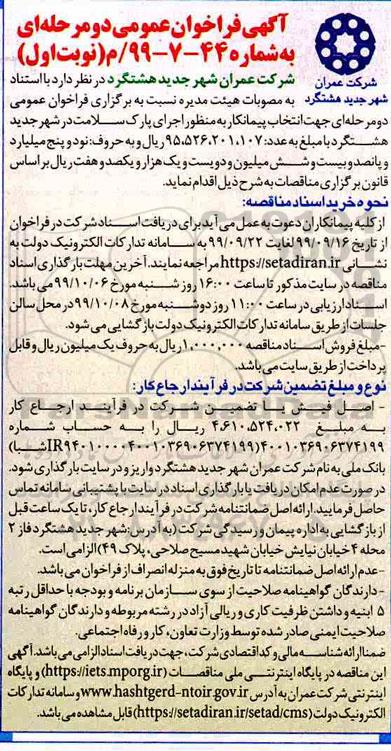 آگهی فراخوان عمومی دو مرحله‌ای
به شماره ۴۴-۷-۹۹/م (نوبت اول)
شرکت عمران
شهر جدید هشتگرد
شرکت عمران شهر جدید هشتگرد در نظر دارد با استناد
به مصوبات هیئت مدیره نسبت به برگزاری فراخوان عمومی
دو مرحله‌ای جهت انتخاب پیمانکار به منظور اجرای پارک سلامت در شهر جدید
هشتگرد با مبلغ به عدد: ۹۵،۵۲۶،۲۰۱،۱۰۷ ریال و به حروف: نود و پنج میلیارد
و پانصد و بیست و شش میلیون و دویست و یک هزار و یکصد و هفت ریال بر اساس
قانون برگزاری مناقصات به شرح ذیل اقدام نماید.
نحوه خرید اسناد مناقصه:
از کلیه پیمانکاران دعوت به عمل می آید برای دریافت اسناد شرکت در فراخوان
از تاریخ ۹۹/۰۹/۱۶ لغایت ۹۹/۰۹/۲۲ به سامانه تدارکات الکترونیک دولت به
نشانی https://setadiran.ir مراجعه نمایند. آخرین مهلت بارگذاری اسناد
مناقصه در سایت مذکور تا ساعت ۱۶:۰۰ روز شنبه مورخ ۹۹/۱۰/۰۶ می باشد.
اسناد ارزیابی در ساعت ۱۱:۰۰ روز دوشنبه مورخ ۹۹/۱۰/۰۸ در محل سالن
جلسات از طریق سامانه تدارکات الکترونیک دولت بازگشایی می شود.
-مبلغ فروش اسناد مناقصه ۱،۰۰۰،۰۰۰ ریال به حروف یک میلیون ریال و قابل
پرداخت از طریق سایت می باشد.
نوع و مبلغ تضمین شرکت در فرآیند ارجاع کار:
اصل فیش یا تضمین شرکت در فرآیند ارجاع کار
به مبلغ ۴،۶۱۰،۵۲۴،۰۲۲ ریال را به حساب شماره
۴۰۰۱۰۳۶۹۰۶۳۷۴۱۹۹ (IR۹۴۰۱۰۰۰۰۴۰۰۱۰۳۶۹۰۶۳۷۴۱۹۹ شبا)
بانک ملی به نام شرکت عمران شهر جدید هشتگرد واریز و در سایت بارگذاری شود.
در صورت عدم امکان دریافت یا بارگذاری اسناد در سایت با پشتیبانی سامانه تماس
حاصل فرمایید. ارائه اصل ضمانتنامه شرکت در فرآیند ارجاع کار، تا یک ساعت قبل
از بازگشایی به اداره پیمان و رسیدگی شرکت (به آدرس: شهر جدید هشتگرد فاز ۲
محله ۴ خیابان نیایش خیابان شهید مسیح صلاحی، پلاک ۴۹) الزامی است.
-عدم ارائه اصل ضمانتنامه تا تاریخ فوق به منزله انصراف از فراخوان می باشد.
-دارندگان گواهینامه صلاحیت از سوی سازمان برنامه و بودجه با حداقل رتبه
۵ ابنیه و داشتن ظرفیت کاری و ریالی آزاد در رشته مربوطه و دارندگان گواهینامه
صلاحیت ایمنی صادر شده توسط وزارت تعاون، کار و رفاه اجتماعی.
ضمنا ارائه شناسه مالی و کد اقتصادی شرکت، جهت دریافت اسناد الزامی می باشد. آگهی
این مناقصه در پایگاه اینترنتی ملی مناقصات (https://iets.mporg.ir) و پایگاه
اینترنتی شرکت عمران به آدرس www.hashtgerd-ntoir.gov.ir و سامانه تدارکات
الکترونیک دولت (https://setadiran.ir/setad/cms) قابل مشاهده می باشد.